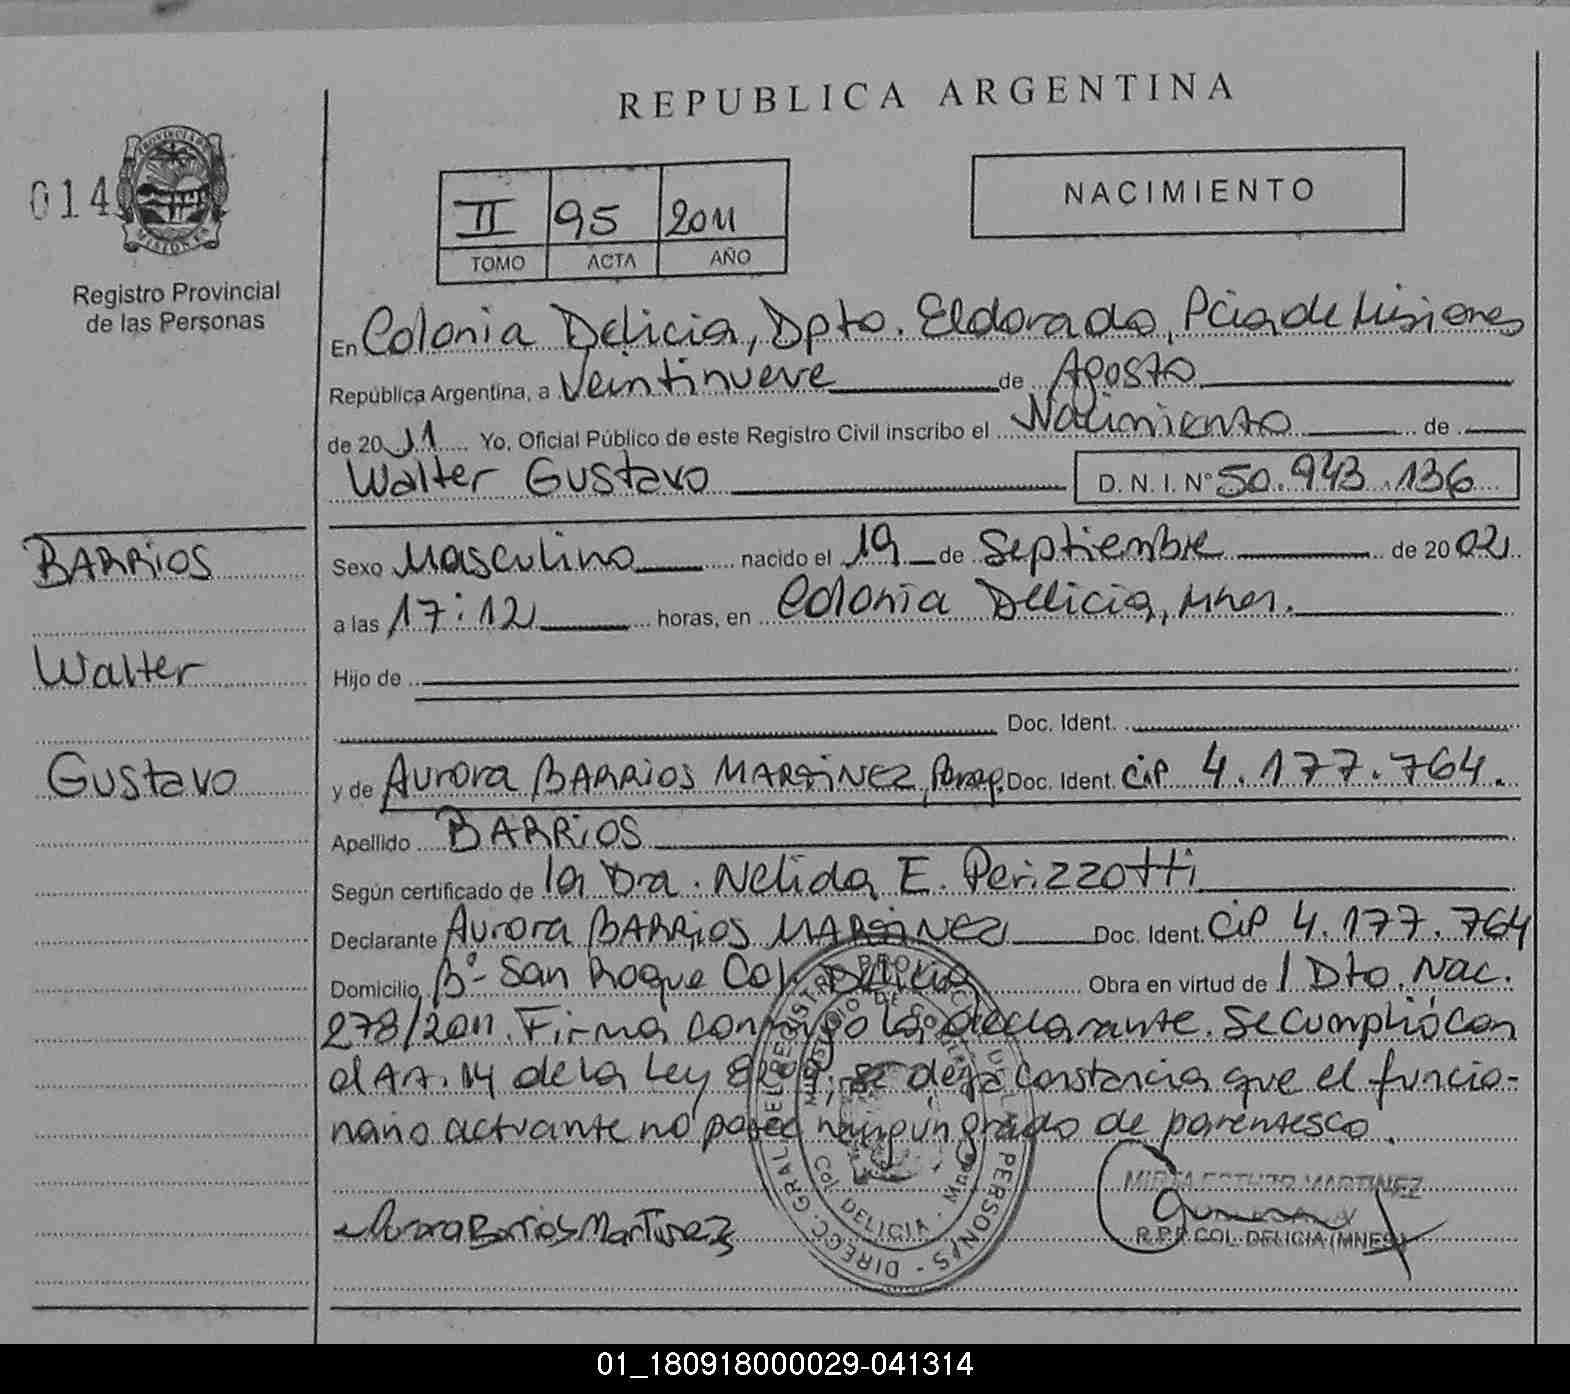 REPUBLICA ARGENTINA
014
PROVINCIA DE MISIONES
Registro Provincial
de las Personas
II 95 2011
TOMO ACTA AÑO
NACIMIENTO
En Colonia Delicia, Dpto. Eldorado, Pcia de Misiones
República Argentina, a Veintinueve de Agosto
de 2011 Yo, Oficial Público de este Registro Civil inscribo el Nacimiento de
Walter Gustavo D. N. I. N° 50.943.136
BARRIOS
Walter
Gustavo
Sexo Masculino nacido el 19 de Septiembre de 2002
a las 17:12 horas, en Colonia Delicia, Mnes.
Hijo de
Doc. Ident.
y de Aurora BARRIOS MARTINEZ, Parag. Doc. Ident. CiP 4.177.764.
Apellido BARRIOS
Según certificado de la Dra. Nelida E. Perizzotti
Declarante Aurora BARRIOS MARTINEZ Doc. Ident. CiP 4.177.764
Domicilio B°- San Roque Col. Delicia Obra en virtud de / Dto. Nac.
278/2011. Firma conmigo la declarante. Se cumplió con
el Art. 14 de la Ley se deja constancia que el funcio-
nario actuante no posee ningun grado de parentesco.
Aurora Barrios Martinez
MIRTA ESTHER MARTINEZ
R.P.P. COL. DELICIA (MNES)
DIRECC. GRAL DEL REGISTRO PROVINCIAL DE LAS PERSONAS
MINISTERIO DE GOBIERNO
COL. DELICIA - Mnes
01_180918000029-041314